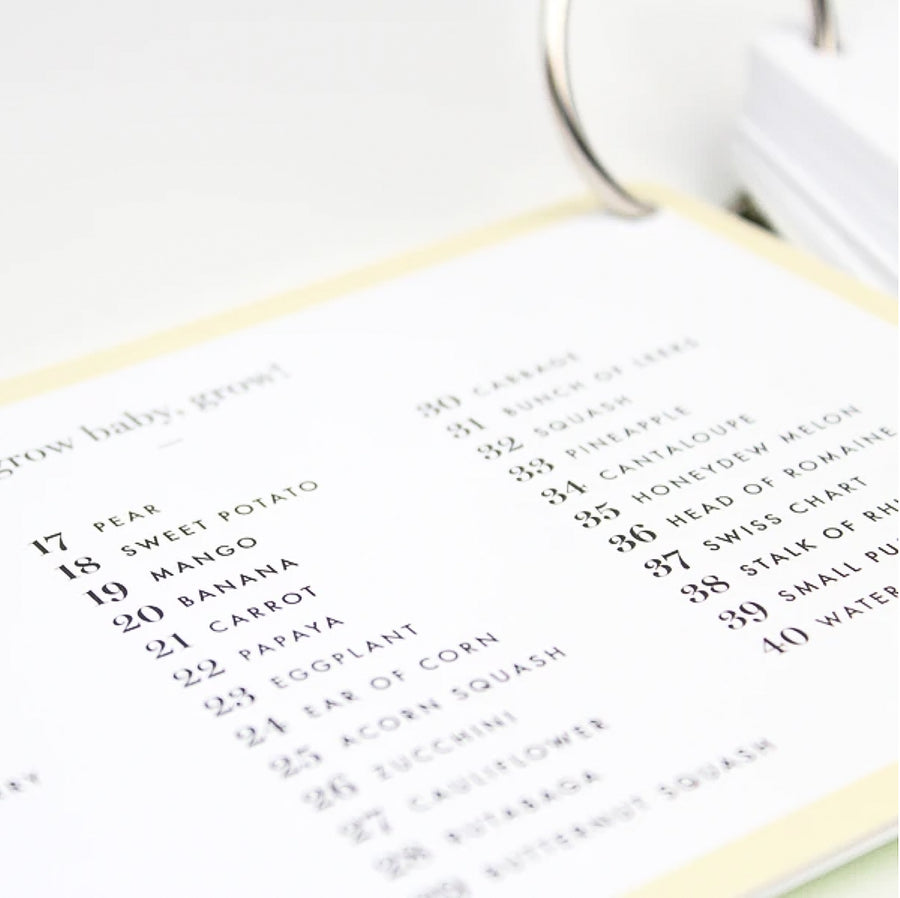 grow baby, grow!
17 PEAR
18 SWEET POTATO
19 MANGO
20 BANANA
21 CARROT
22 PAPAYA
23 EGGPLANT
24 EAR OF CORN
25 ACORN SQUASH
26 ZUCCHINI
27 CAULIFLOWER
28 RUTABAGA
29 BUTTERNUT SQUASH
30 CABBAGE
31 BUNCH OF LEEKS
32 SQUASH
33 PINEAPPLE
34 CANTALOUPE
35 HONEYDEW MELON
36 HEAD OF ROMAINE
37 SWISS CHART
38 STALK OF
39 SMALL
40